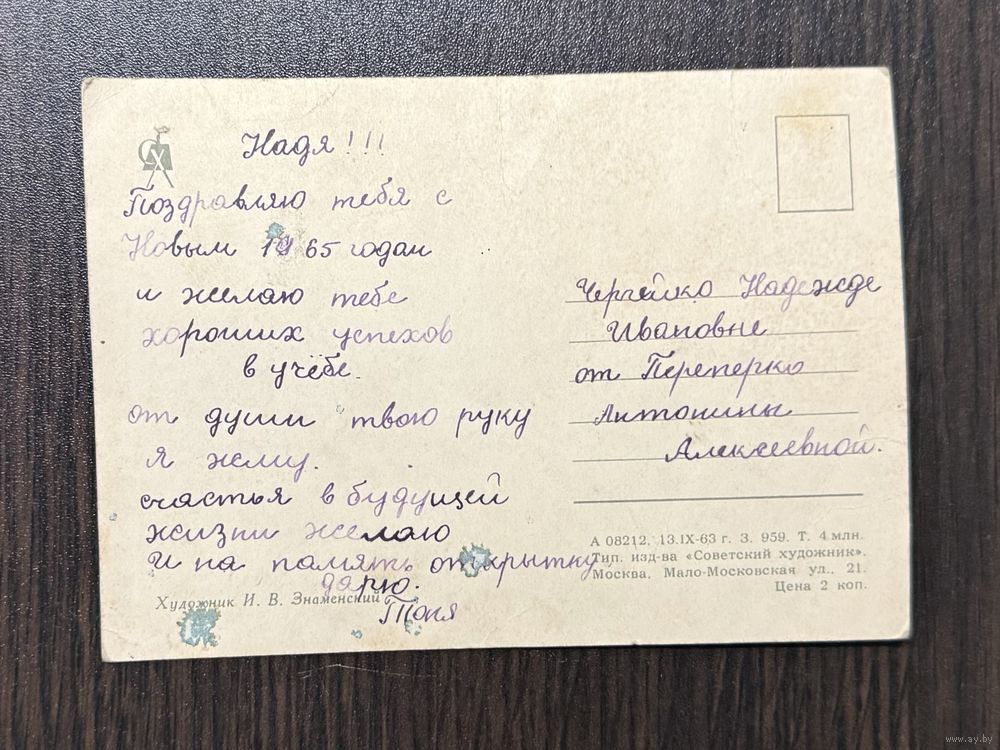 Надя!!!
Поздравляю тебя с
Новым 1965 годом
и желаю тебе
хороших успехов
в учёбе.
от души твою руку
я жму.
счастья в будущей
жизни желаю
И на память открытку
дарю.
Тоня
Художник И. В. Знаменский
Чергейко Надежде
Ивановне
от Переперко
Антонины
Алексеевной.
А 08212. 13.IX-63 г. З. 959. Т. 4 млн.
Тип. изд-ва «Советский художник».
Москва, Мало-Московская ул., 21.
Цена 2 коп.
www.ay.by